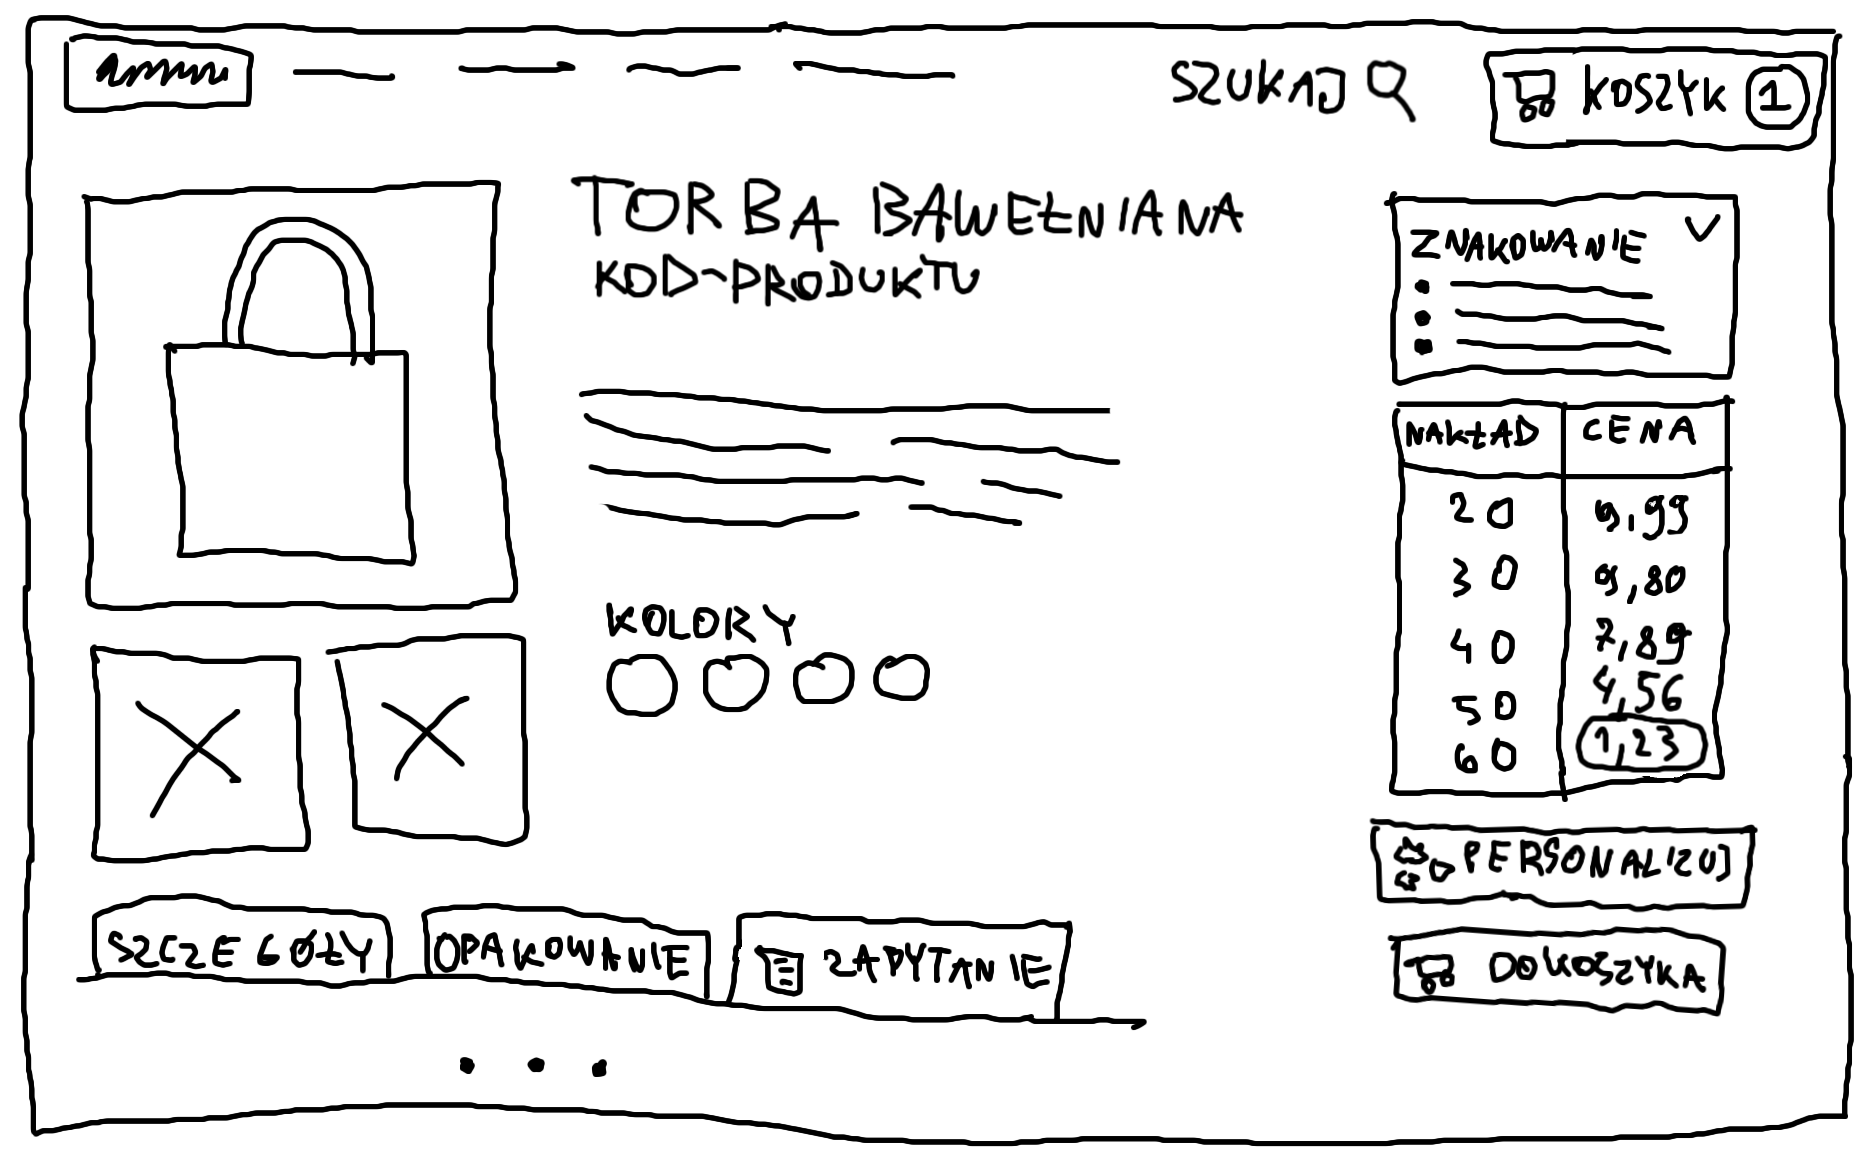 SZUKAJ
KOSZYK 1
TORBA BAWEŁNIANA
KOD-PRODUKTU
ZNAKOWANIE
NAKŁAD CENA
20 9,99
30 9,80
40 7,89
50 4,56
60 1,23
KOLORY
PERSONALIZUJ
DO KOSZYKA
SZCZEGÓŁY OPAKOWANIE ZAPYTANIE